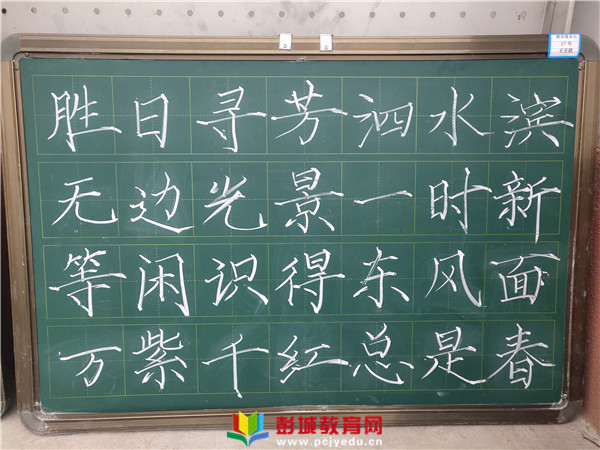 胜日寻芳泗水滨
无边光景一时新
等闲识得东风面
万紫千红总是春
彭城教育网
www.pcjyedu.cn